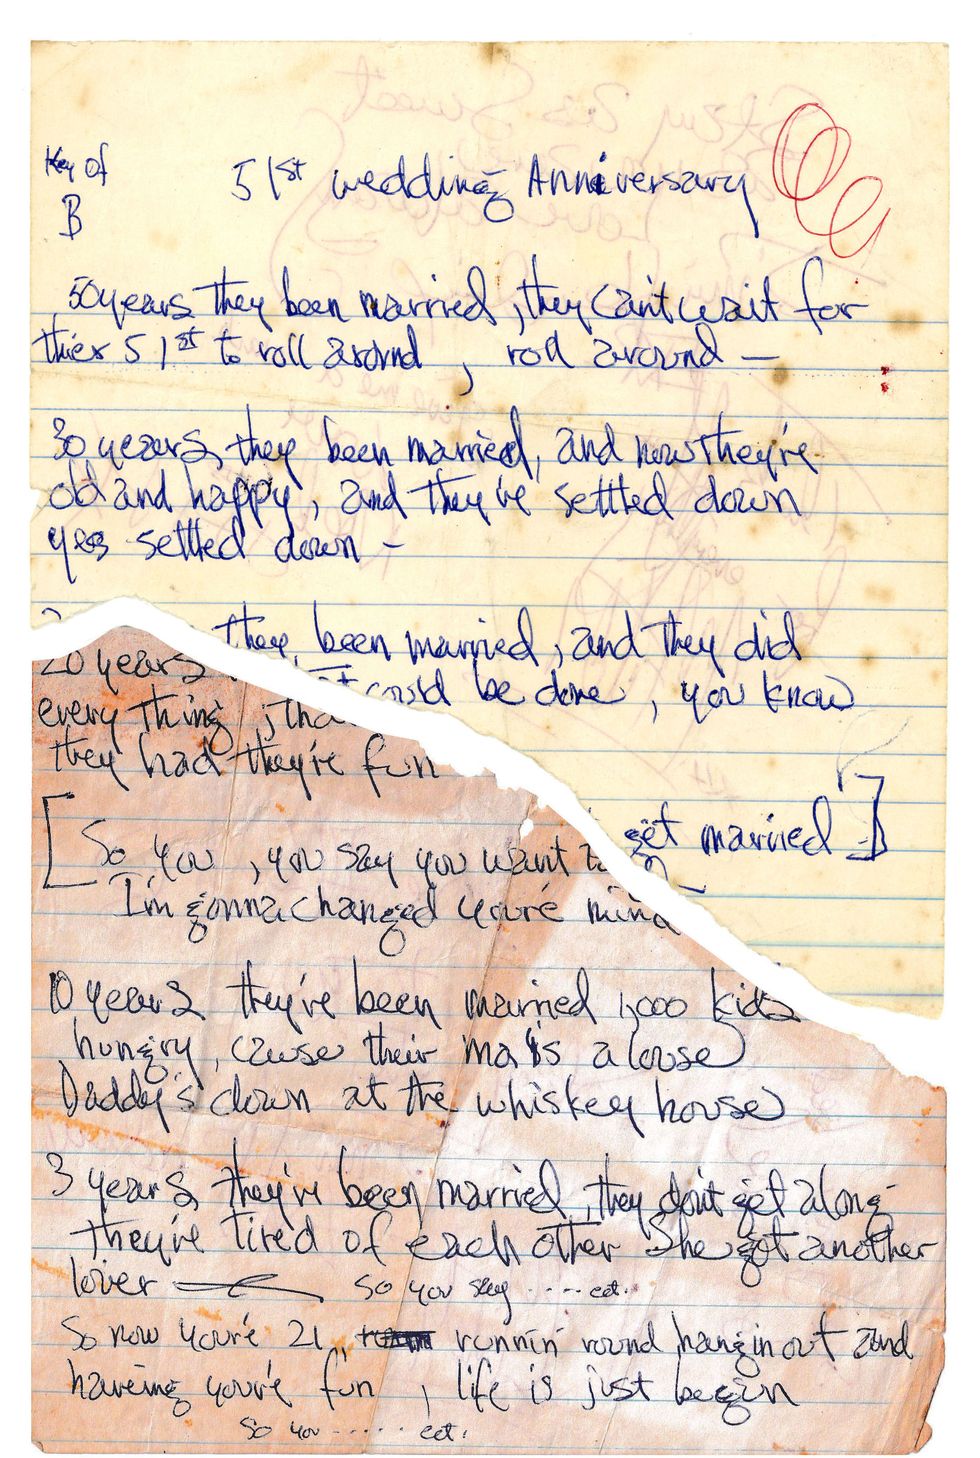 Key of
B
51st wedding Anniversary
50 years they been married, they can't wait for
thier 51st to roll around, roll around —
30 years they been married, and now they're
old and happy, and they've settled down
yes settled down –
they been married, and they did
20 years
could be done, you know
every thing, tha
they had they're fun
[So you, you say you want to get married]
I'm gonna changed you're mind
10 years they've been married 1,000 kids
hungry, cause their ma is a louse
Daddy's down at the whiskey house
3 years they've been married, they don't get along
they're tired of each other She got another
lover — so you say ..... ect.
So now you're 21, runnin' round hangin out and
haveing you're fun, life is just begin
So you ..... ect.